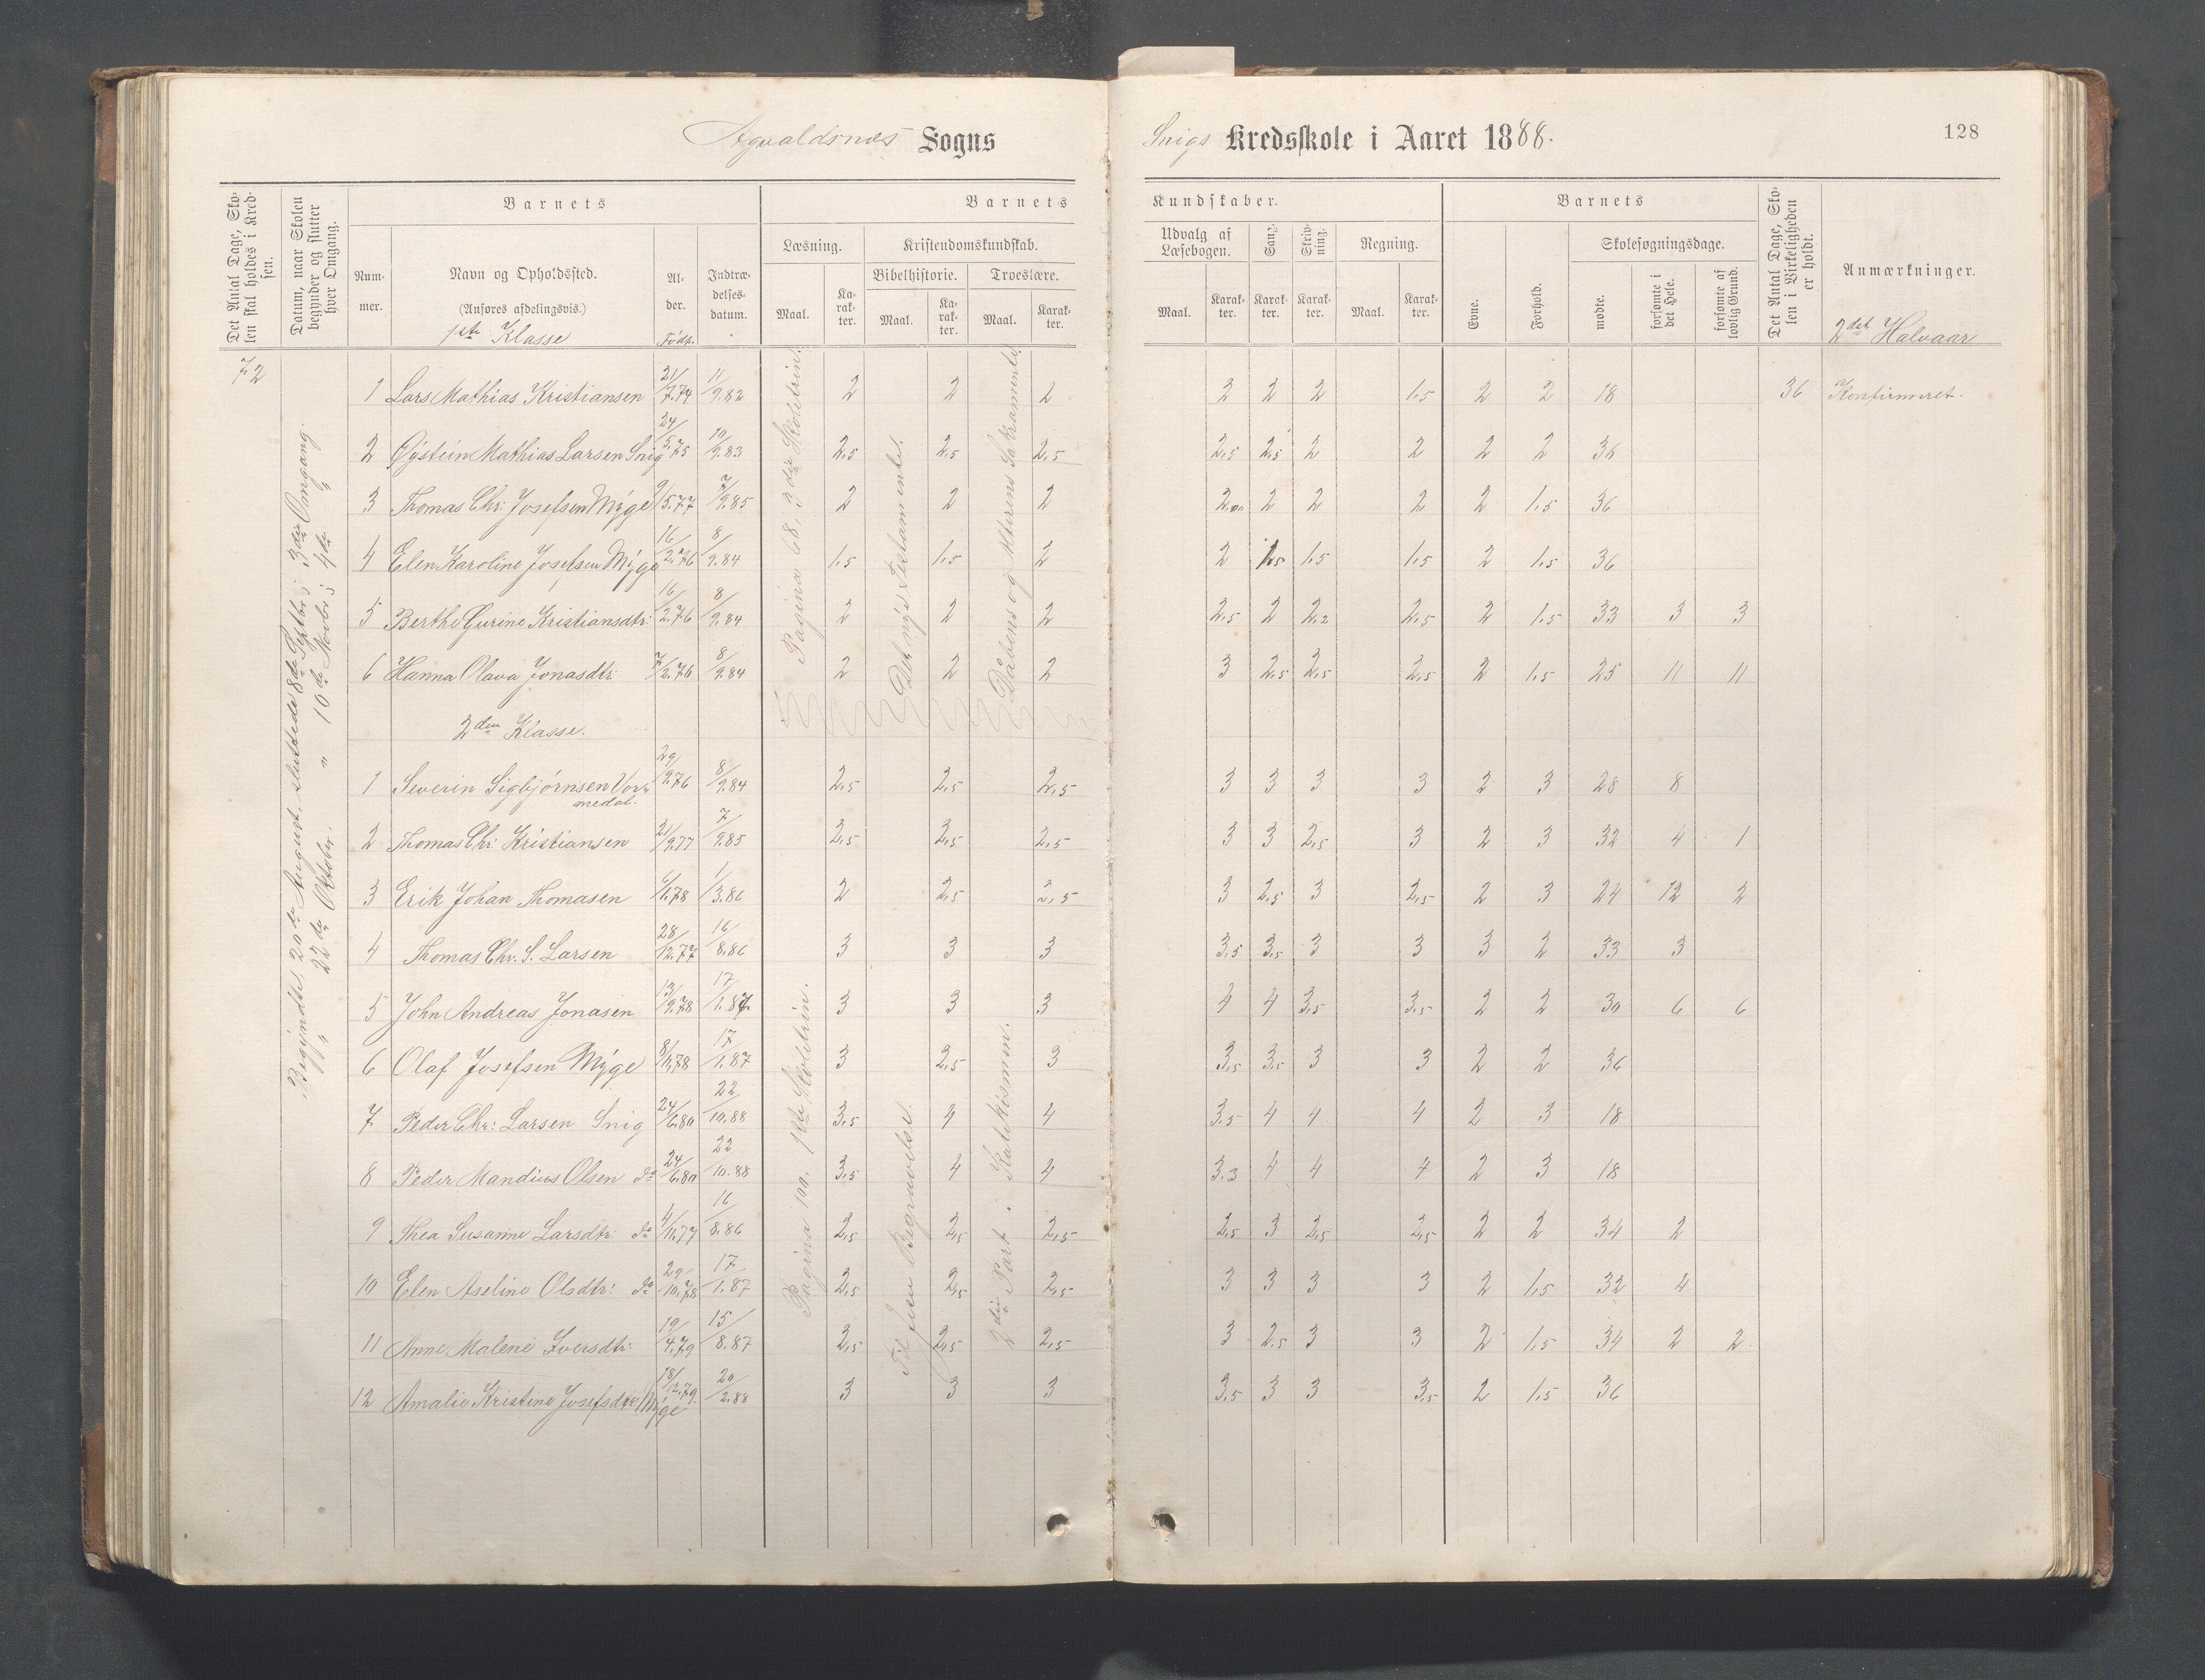 Agvaldsnes Sogns
Snigs Kredsskole i Aaret 1888.
128
Det Antal Dage, Skolen skal holdes i Kredsen.
Datum, naar Skolen begynder og slutter hver Omgang.
Barnets
Nummer.
Navn og Opholdssted.
(Anføres afdelingsvis.)
1ste Klasse
Alder.
Født.
Indtrædelsesdatum.
Barnets
Læsning.
Kristendomskundskab.
Bibelhistorie.
Troeslære.
Maal.
Karakter.
Maal.
Karakter.
Maal.
Karakter.
Kundskaber.
Udvalg af Læsebogen.
Sang.
Skrivning.
Regning.
Maal.
Karakter.
Karakter.
Karakter.
Maal.
Karakter.
Barnets
Evne.
Forhold.
Skolesøgningsdage.
mødte.
forsømte i det Hele.
forsømte af lovlig Grund.
Det Antal Dage, Skolen i Virkeligheden er holdt.
Anmærkninger.
2det Halvaar
72
Begyndte 20de August, sluttede 8de Septbr; 3die Omgang.
" 22de Oktober. " 10de Novbr; 4de "
Pagina 68, 3die Skoletrin.
Det nye Testamente.
Dåbens og Alterens Sakramente
1 Lars Mathias Kristiansen 21/7.74 11/9.82 2 2 2 3 2 2 1,5 2 2 18 36 Konfirmeret.
2 Øystein Mathias Larsen Snig 24/5.75 10/9.83 2,5 2,5 2,5 2,5 2,5 2 2 2 2 36
3 Thomas Chr. Josefsen Myge 9/5.77 7/9.85 2 2 2 2 2 2 2 1,5 36
4 Elen Karoline Josefsen Myge 16/2.76 8/9.84 1,5 1,5 2 2 1,5 1,5 1,5 2 1,5 36
5 Berthe Gurine Kristiansdtr. 16/2.76 8/9.84 2 2 2 2,5 2 2,2 2,5 2 1,5 33 3 3
6 Hanna Olava Jonasdtr. 7/2.76 8/9.84 2 2 2 3 2,5 2,5 2,5 2 1,5 25 11 11
2den Klasse.
Pagina 100, 1ste Skoletrin.
Til Jesu Begravelse.
2den Part i Katekismen.
1 Severin Sigbjørnsen Vormedal. 29/9.76 8/9.84 2,5 2,5 2,5 3 3 3 3 2 3 28 8
2 Thomas Chr. Kristiansen 21/9.77 7/9.85 2,5 2,5 2,5 3 3 2,5 3 2 3 32 4 1
3 Erik Johan Thomasen 6/1.78 1/3.86 2 2,5 2,5 3 2,5 3 2,5 2 3 24 12 2
4 Thomas Chr. S. Larsen 28/12.77 16/8.86 3 3 3 3,5 3,5 3 3 3 2 33 3
5 John Andreas Jonasen 13/9.78 17/1.87 3 3 3 4 4 3,5 3,5 2 2 30 6 6
6 Olaf Josefsen Myge 8/11.78 17/1.87 3 2,5 3 3,5 3,5 3 3 2 2 36
7 Peder Chr. Larsen Snig 24/6.80 22/10.88 3,5 4 4 3,5 4 4 4 2 3 18
8 Peder Mandius Olsen do 24/6.80 22/10.88 3,5 4 4 3,3 4 4 4 2 3 18
9 Thea Susanne Larsdtr. do 4/11.77 16/8.86 2,5 2,5 2,5 2,5 3 2,5 2,5 2 2 34 2
10 Elen Aseline Olsdtr. do 29/10.78 17/1.87 2,5 2,5 2,5 3 3 3 3 2 1,5 32 4
11 Anne Malene Iversdtr. 19/4.79 15/8.87 2,5 2,5 2,5 3 2,5 3 3 2 1,5 34 2 2
12 Amalie Kristine Josefsdtr. Myge 18/12.79. 20/2.88 3 3 3 3,5 3 3 3,5 2 1,5 36